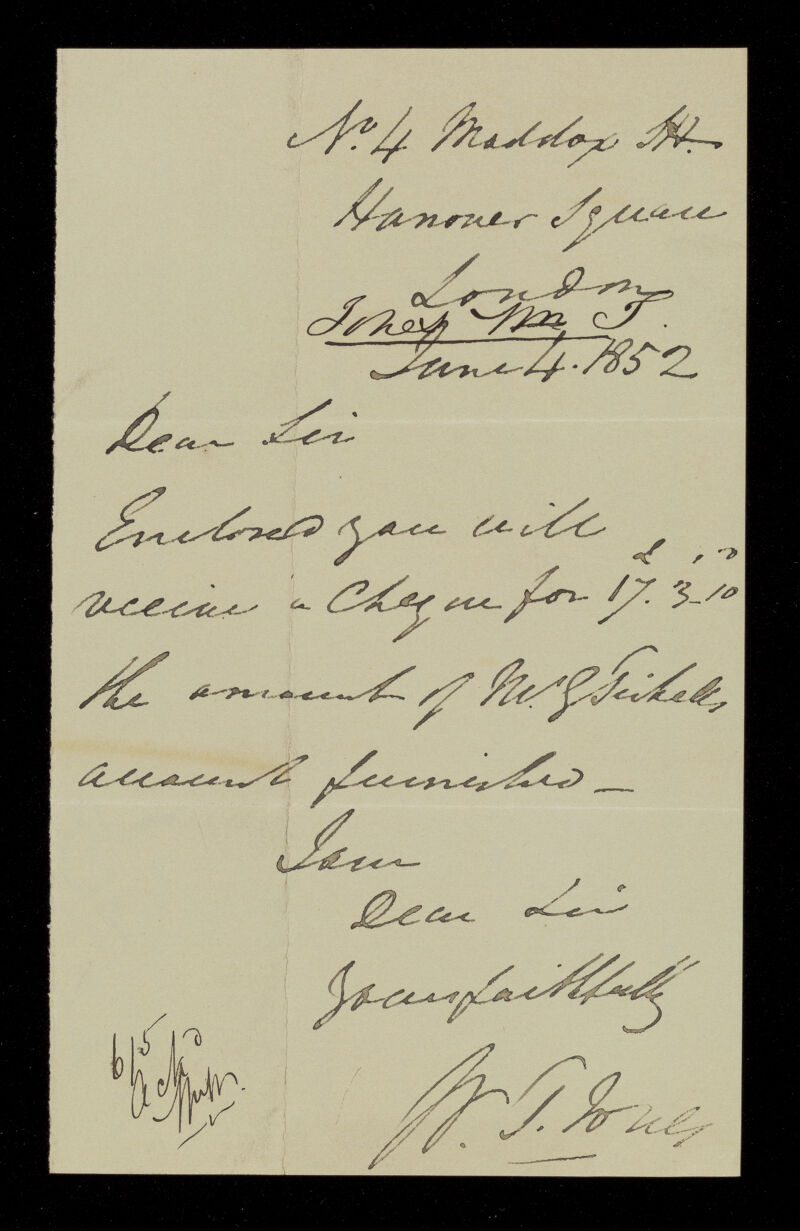 No. 4 Maddox St.
Hanover Square
London
Jones Wm T.
June 4. 1852
Dear Sir
Enclosed you will
receive a Cheque for £17. 3. 10
the amount of Mr. G Tickells
account furnished –
I am
Dear Sir
Yours faithfully
W. T. Jones
6/5
Ackd